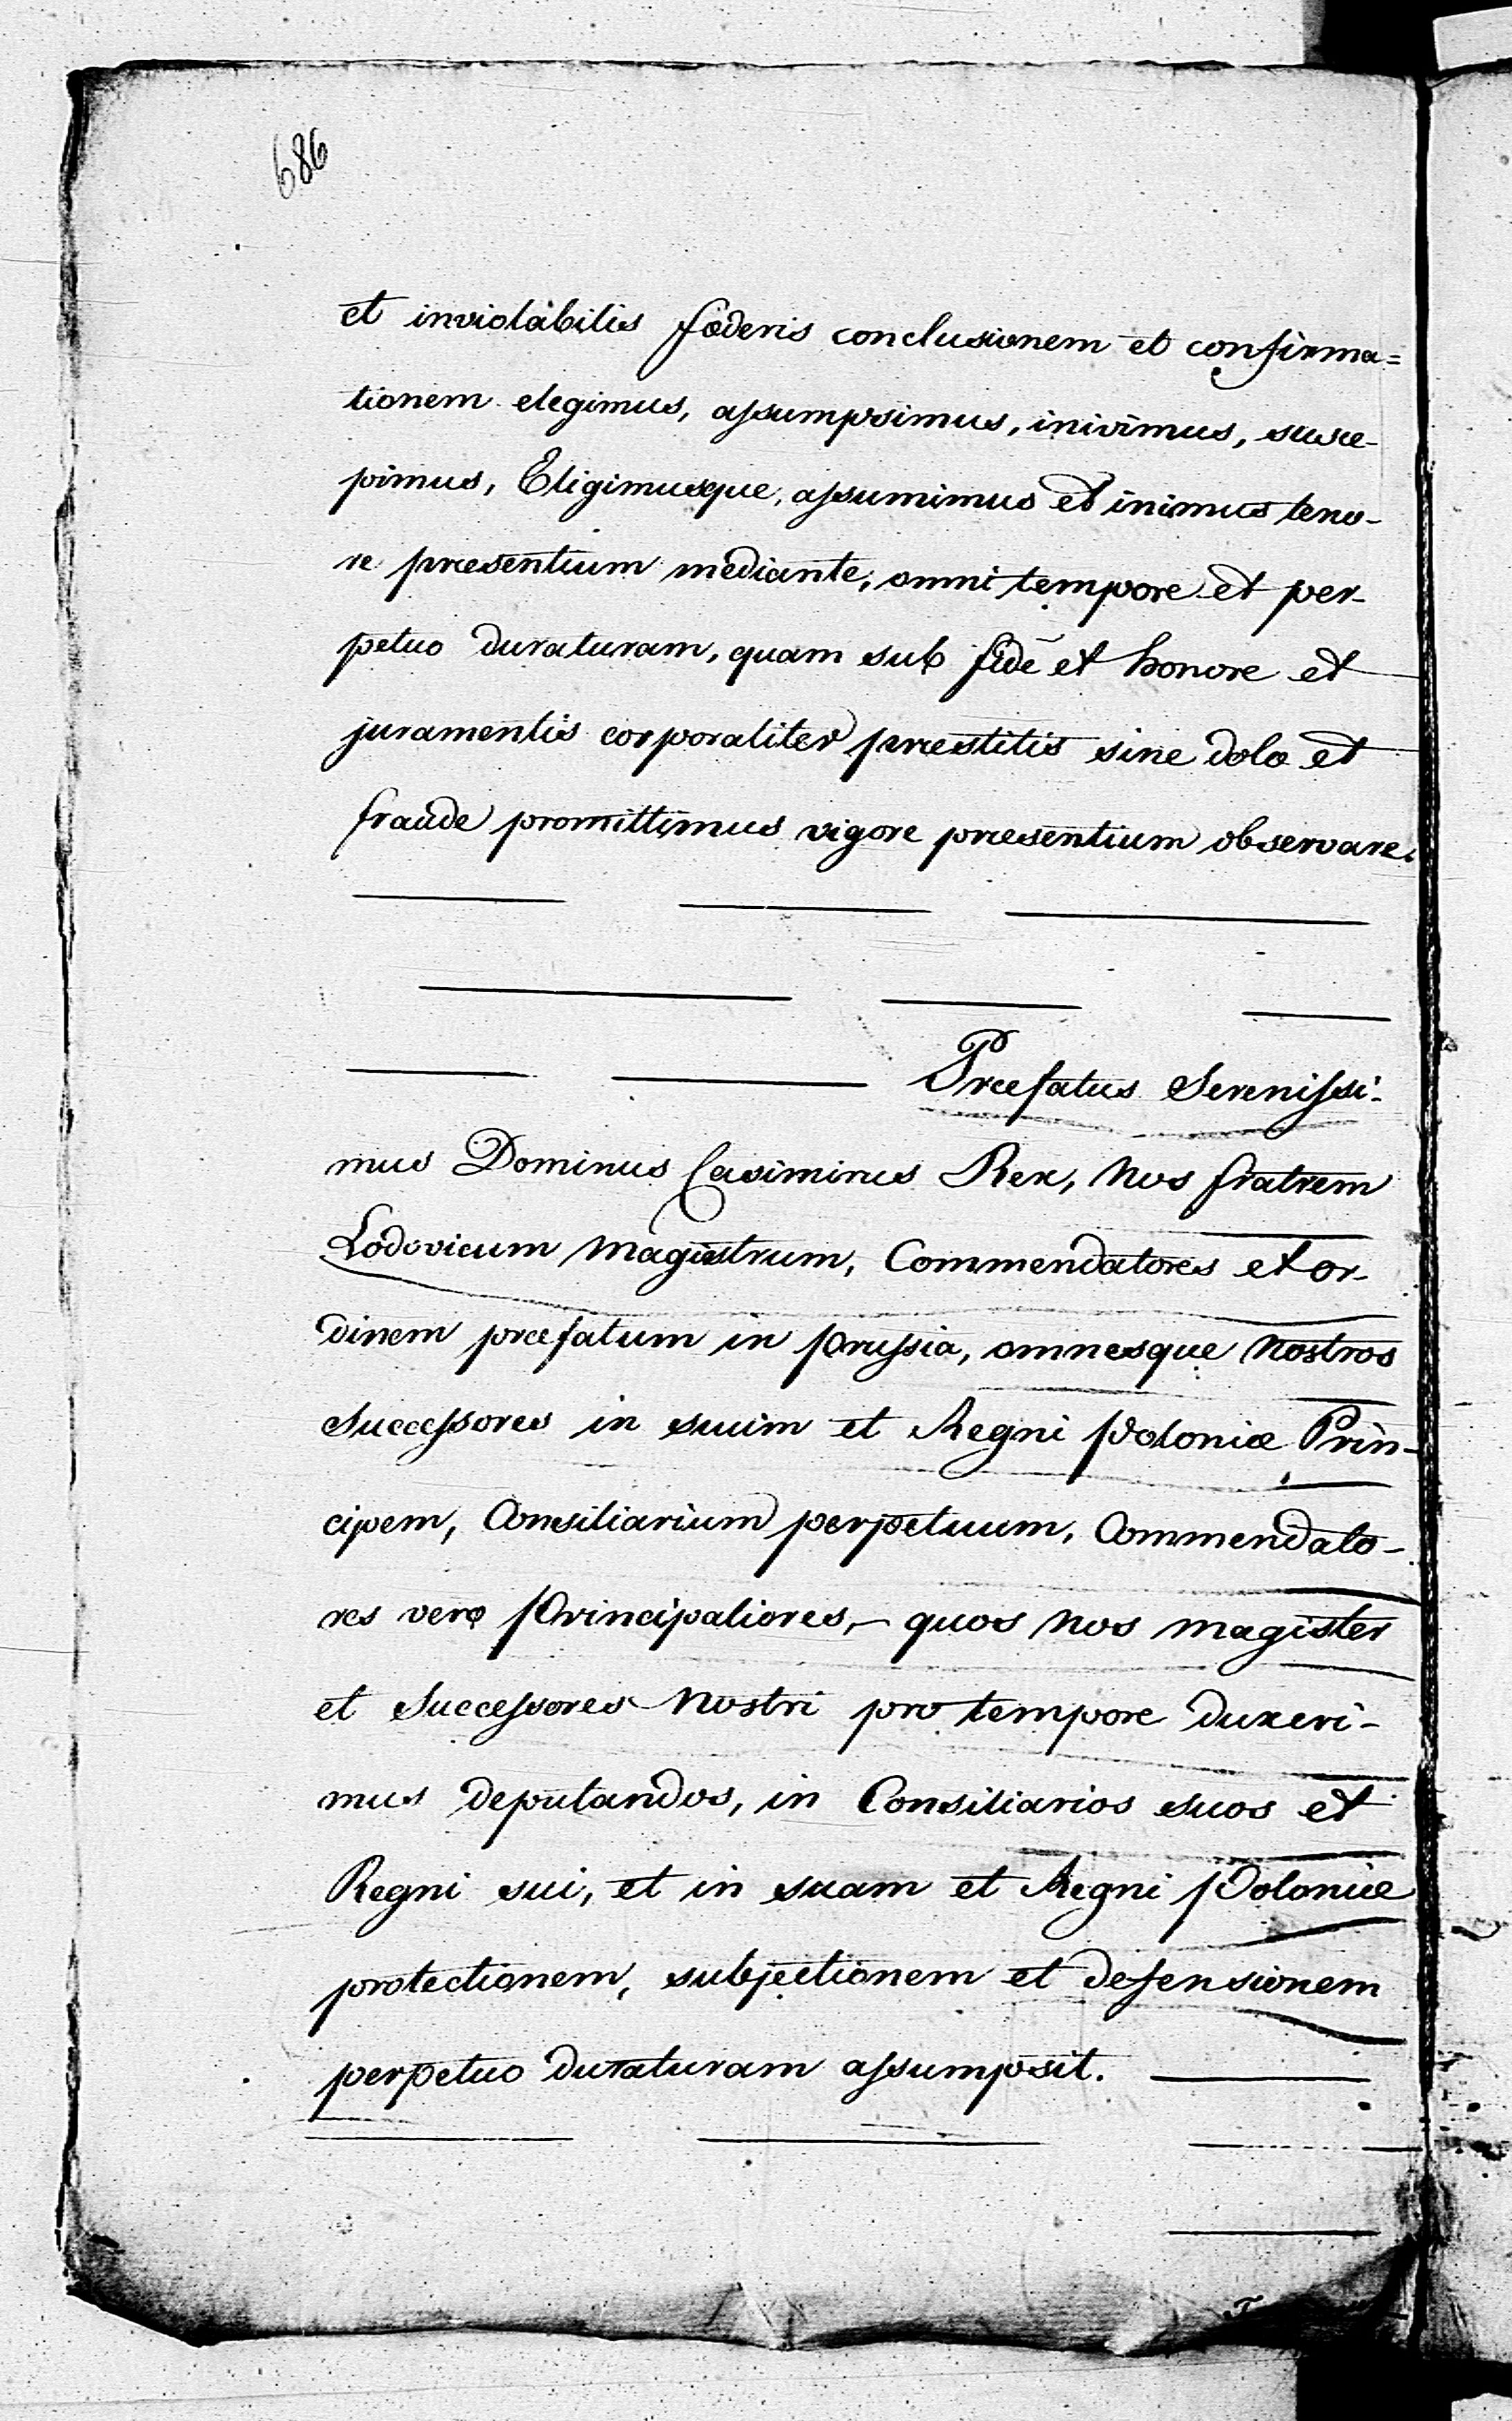 686
et inviolabilis fœderis conclusionem et confirma=
tionem elegimus, assumpsimus, inivimus, susce-
pimus, Eligimusque, assumimus et inimus teno-
re præsentium mediante, omni tempore et per-
petuo duraturam, quam sub fide et honore et
juramentis corporaliter præstitis sine dolo et
fraude promittimus vigore præsentium observare.
Præfatus Serenissi-
mus Dominus Casimirus Rex, Nos fratrem
Lodovicum Magistrum, Commendatores et or-
dinem præfatum in Prussia, omnesque Nostros
Successores in suum et Regni Poloniæ Prin-
cipem, Consiliarium perpetuum, Commendato-
res vero Principaliores, quos Nos Magister
et Successores Nostri pro tempore duxeri-
mus deputandos, in Consiliarios suos et
Regni sui, et in suam et Regni Poloniæ
protectionem, subjectionem et defensionem
perpetuo duraturam assumpsit.